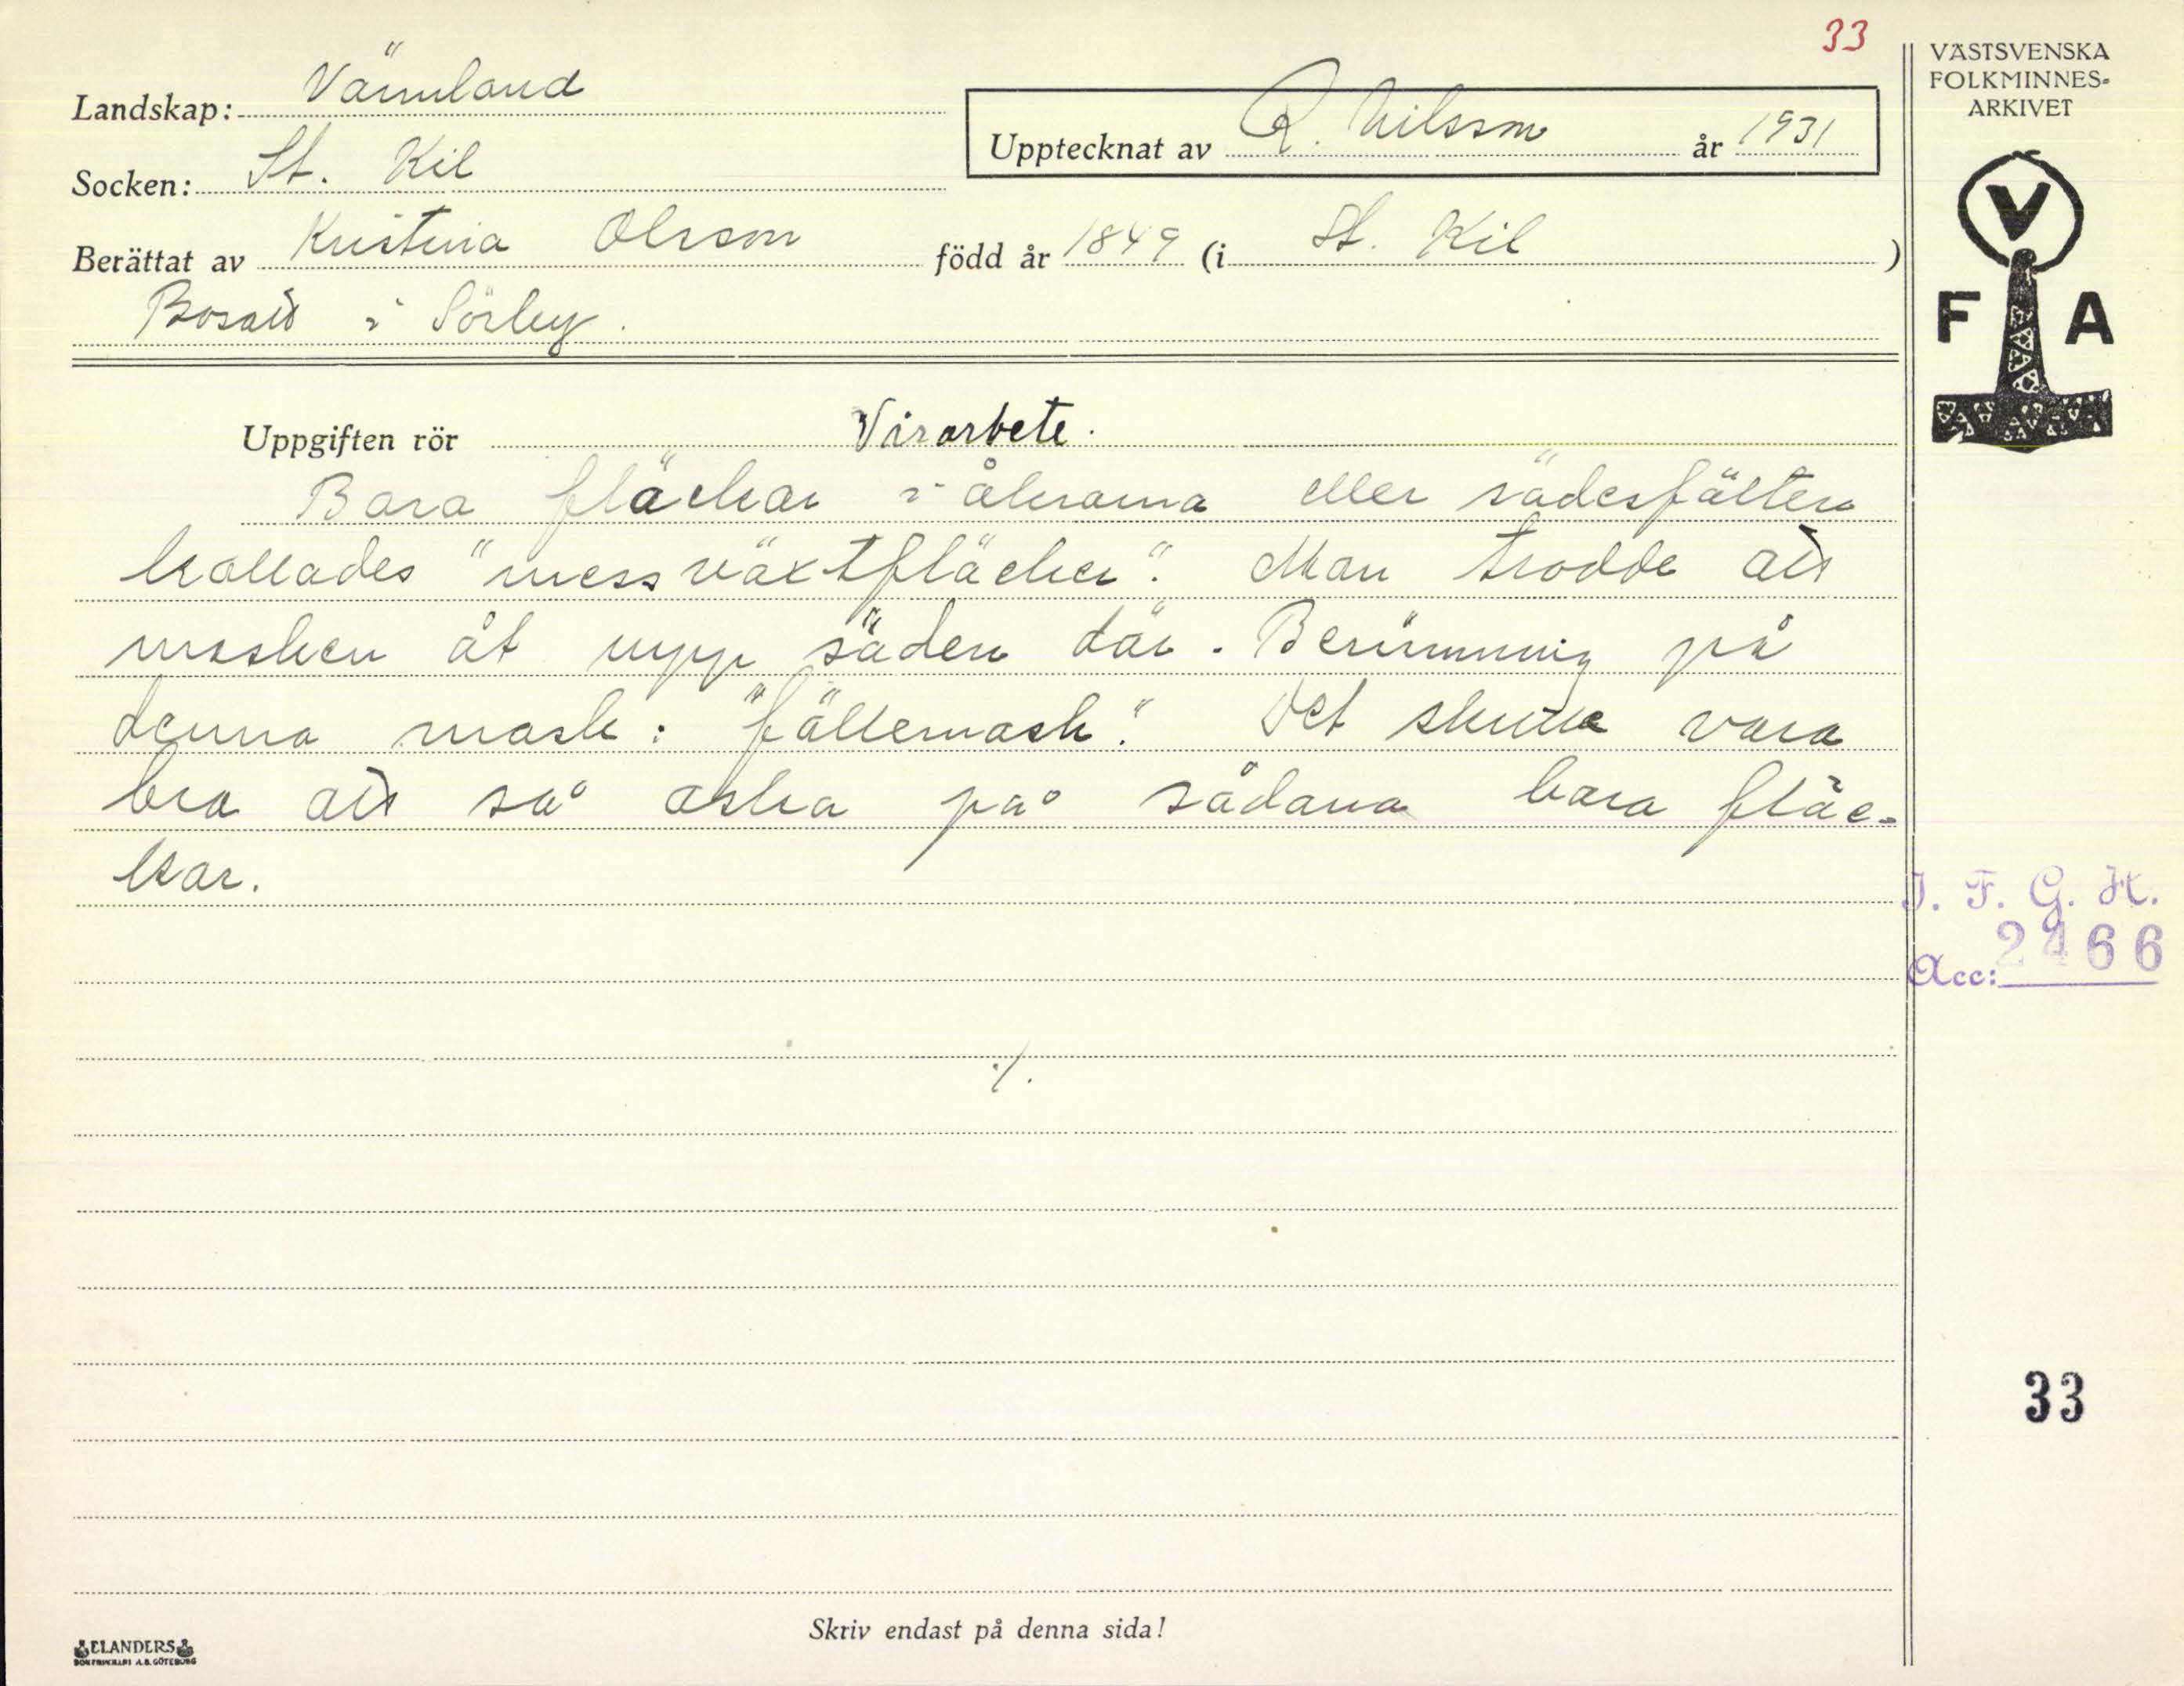 33
VÄSTSVENSKA
FOLKMINNES-
ARKIVET
Landskap: Värmland
Upptecknat av R. Nilsson år 1931
Socken: St. Kil
Berättat av Kristina Olsson född år 1849 (i St. Kil )
Bosatt i Sörby.
V
F A
Uppgiften rör Vårarbete.
Bara fläckar i åkrarna eller sädesfälten
kallades "messväxtfläcker". Man trodde att
masken åt upp säden där. Benämning på
denna mask: "fällemask". Det skulle vara
bra att så aska på sådana bara fläc-
kar.
J. F. G. H.
Acc: 2466
./.
33
Skriv endast på denna sida!
ELANDERS
BOKTRYCKERI A.B. GÖTEBORG